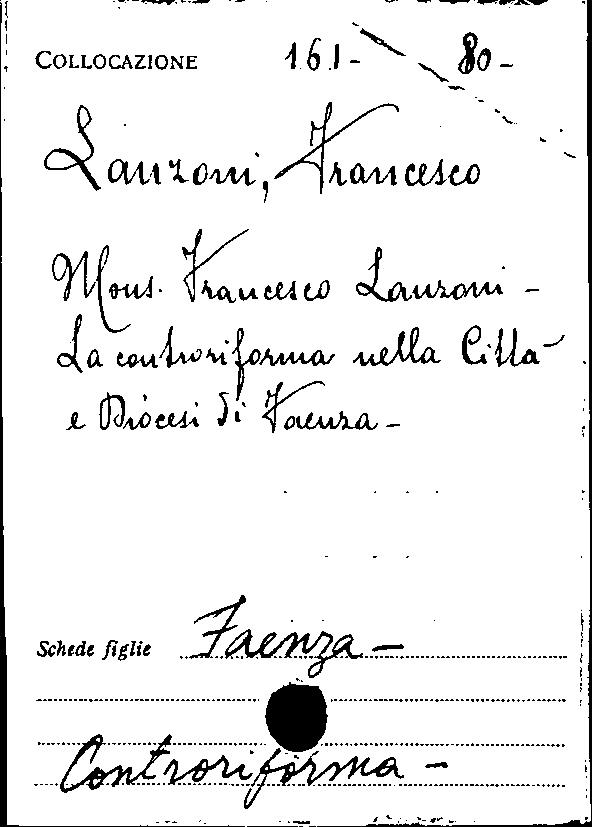 COLLOCAZIONE 161- 80-
Lanzoni, Francesco
Mons. Francesco Lanzoni -
La controriforma nella Città
e Diocesi di Faenza -
Schede figlie Faenza -
Controriforma -